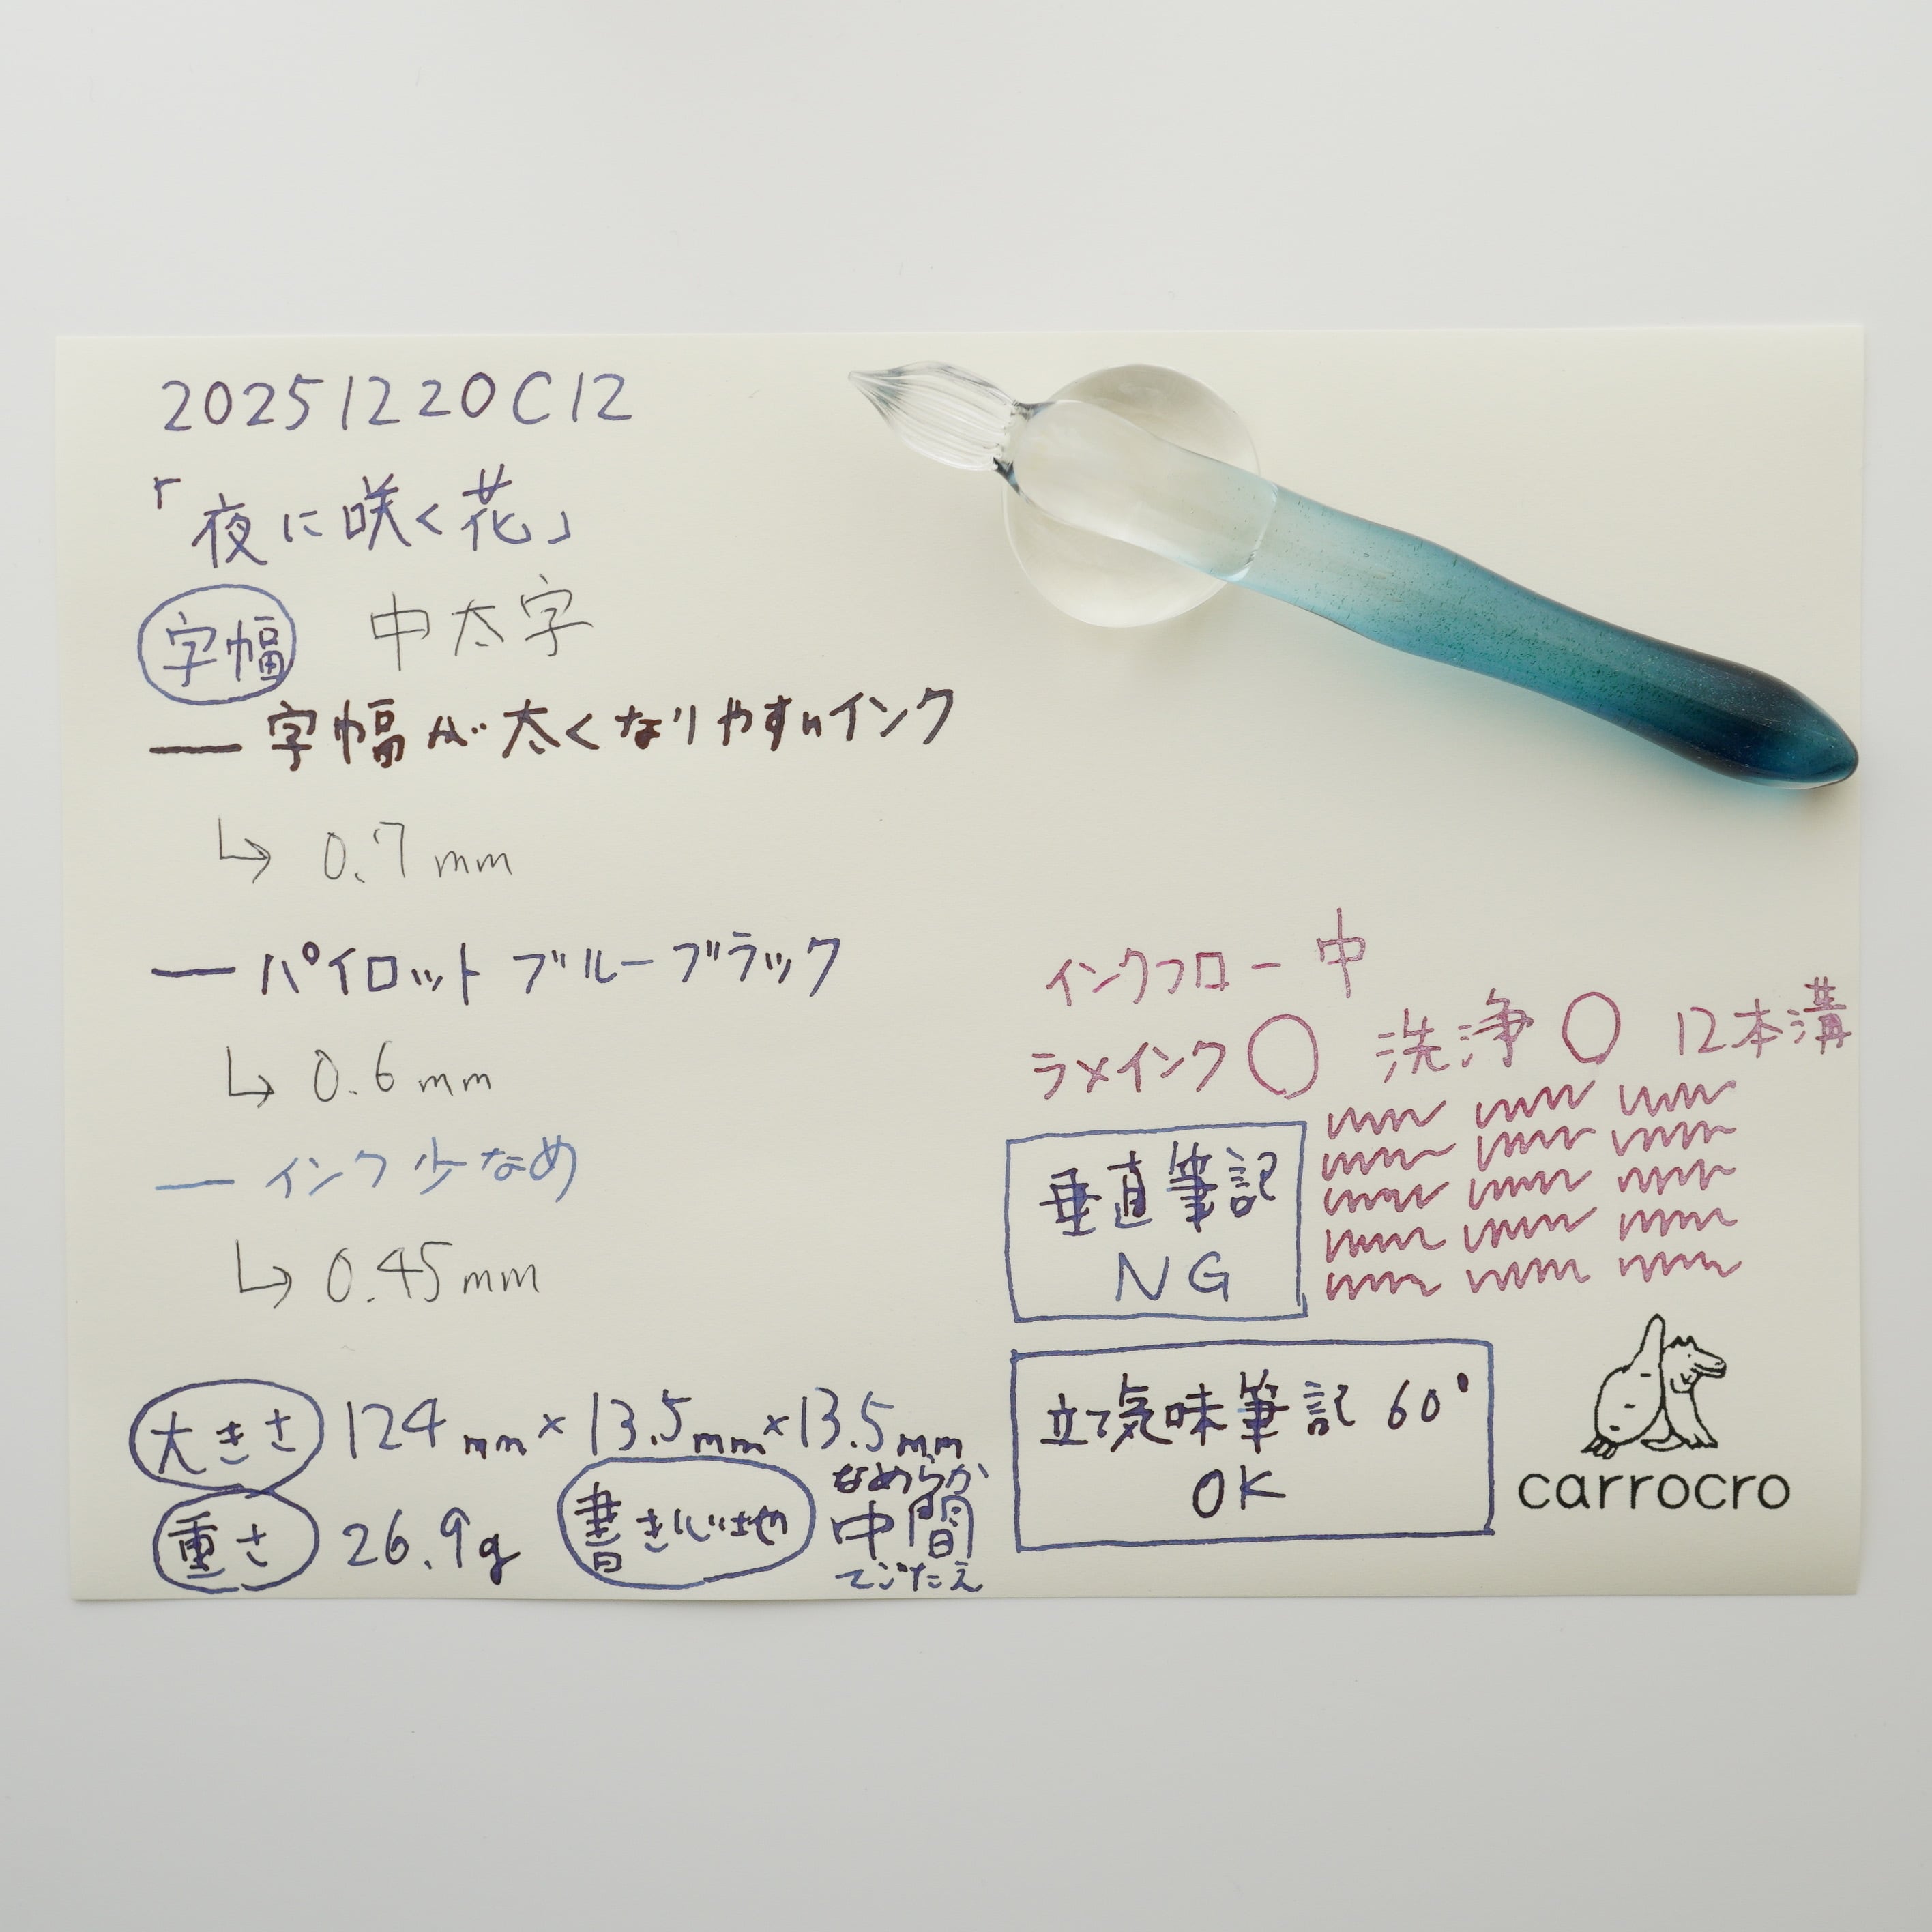 20251220C12
「夜に咲く花」
字幅 中太字
— 字幅が太くなりやすいインク
↳ 0.7mm
— パイロット ブルーブラック
↳ 0.6mm
— インク少なめ
↳ 0.45mm
大きさ 124mm×13.5mm×13.5mm
重さ 26.9g
書き心地
なめらか
中間
てごたえ
インクフロー 中
ラメインク ○ 洗浄 ○ 12本溝
垂直筆記
NG
立て気味筆記 60°
OK
carrocro